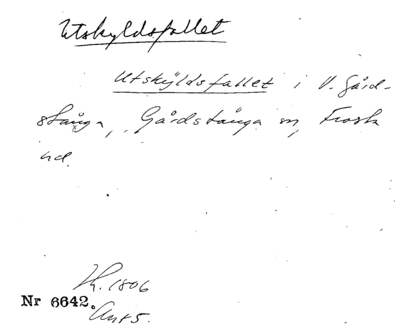 Utskyldsfallet
Utskyldsfallet i V. Gård-
stånga, Gårdstånga sn, Frosta
hd.
Kr. 1806
Nr 6642.
Ant 5.